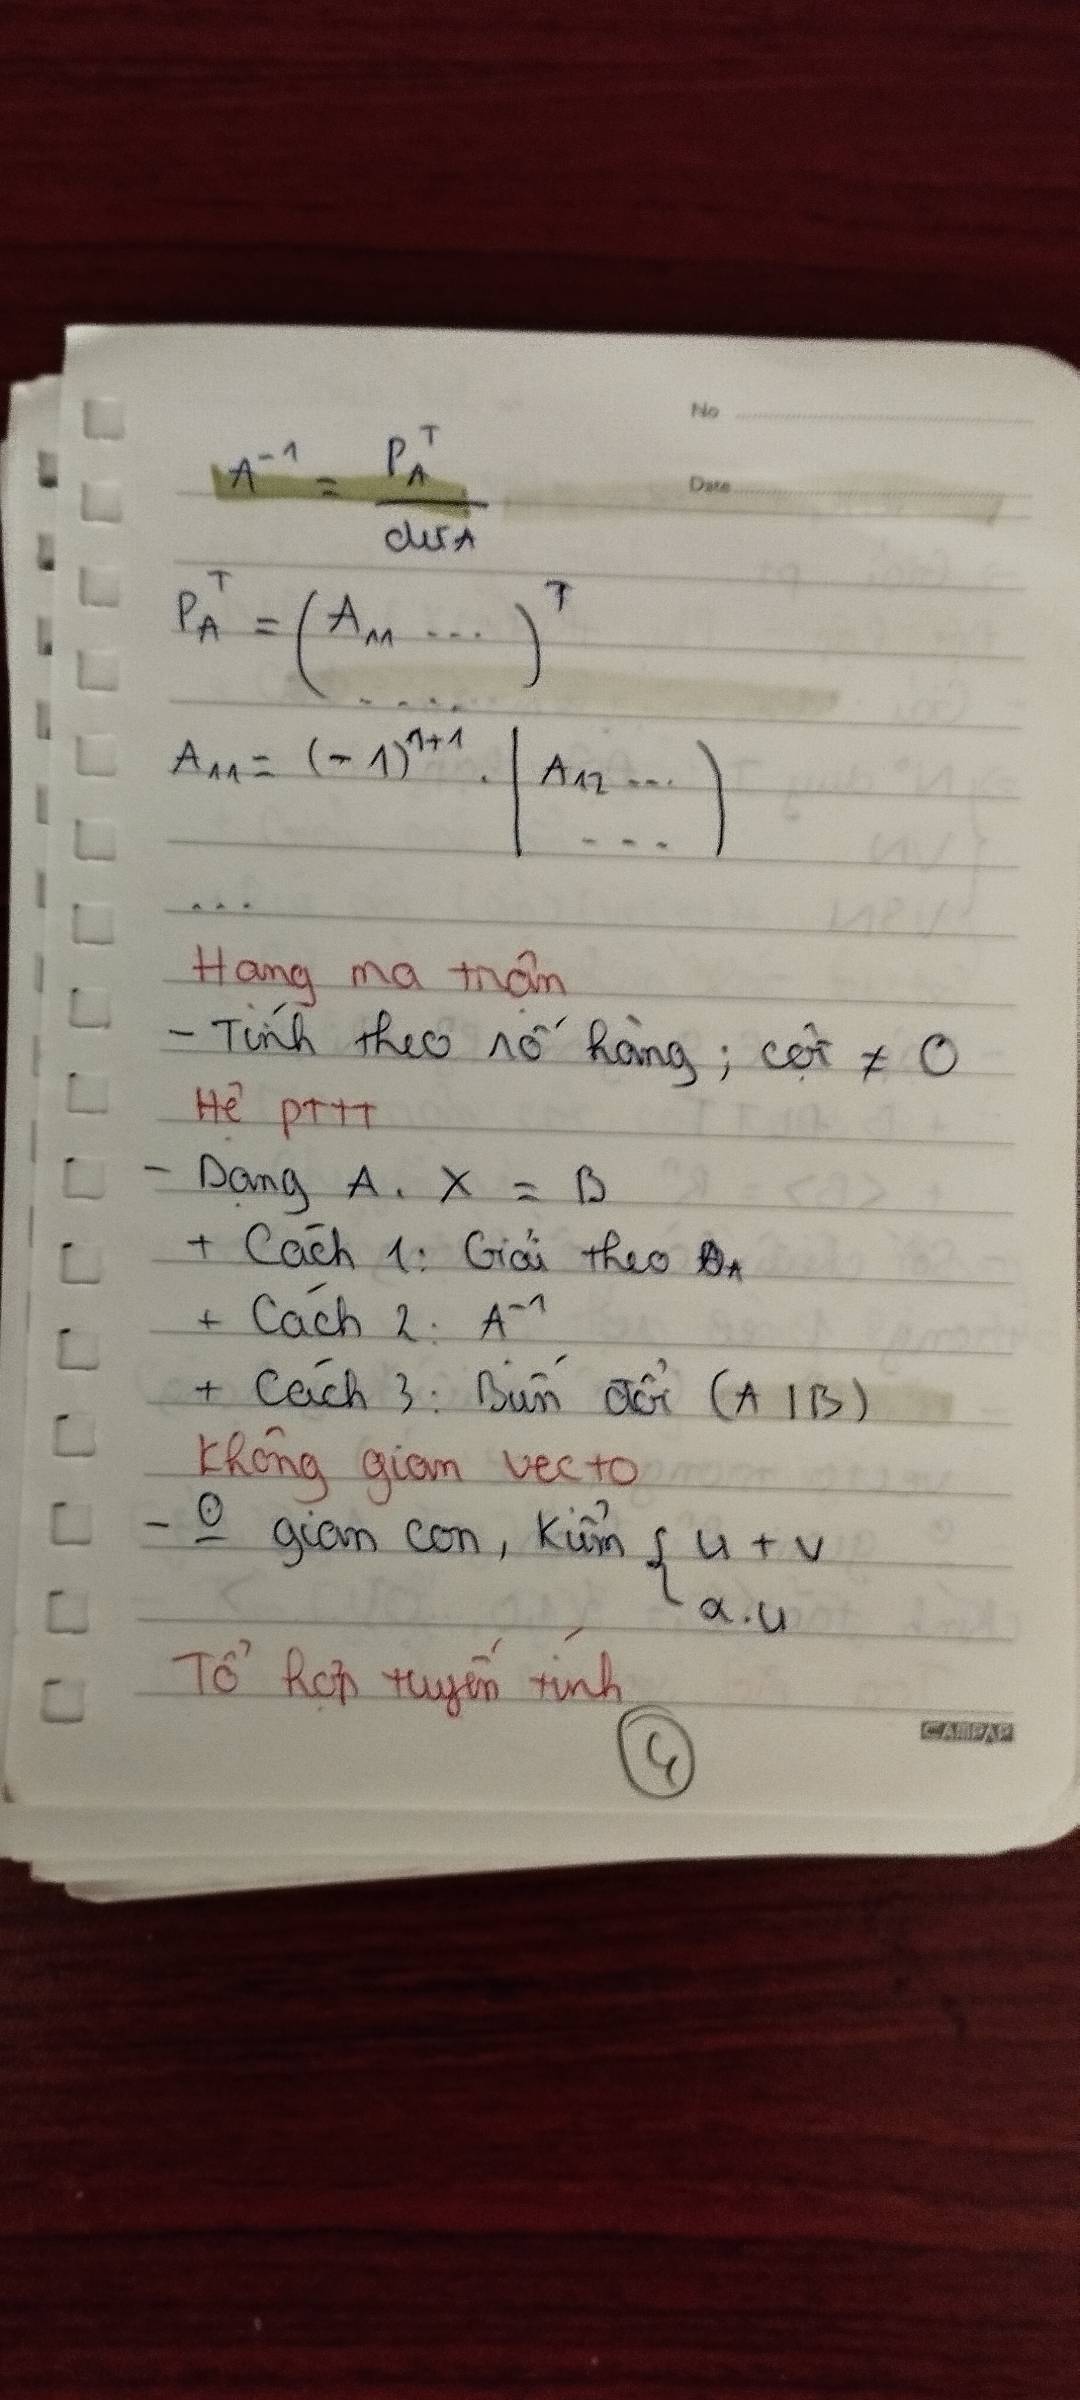 No
Date
A⁻¹ = P_A^T / detA
P_A^T = (A₁₁ ... ....)^T
A₁₁ = (-1)^{1+1} . | A₁₂ ... ... |
...
Hạng ma trận
- Tính theo số hàng; cột ≠ 0
Hệ PTTT
- Dạng A. X = B
+ Cách 1: Giải theo
+ Cách 2: A⁻¹
+ Cách 3: Biến đổi (A | B)
Không gian vecto
- gian con, kiểm { u + v
a.u
Tổ hợp tuyến tính
4
CAMPAP